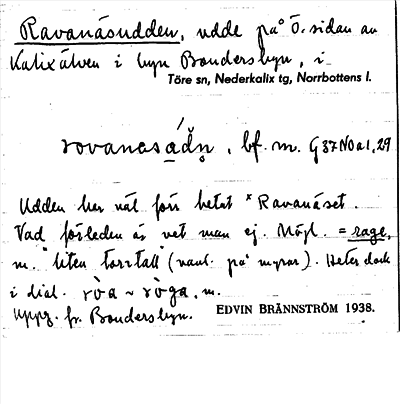 Ravanäsudden, udde på Ö. sidan av
Kalixälven i byn Bondersbyn, i
Töre sn, Nederkalix tg, Norrbottens l.
bf. m. G37NOa1,29
Udden har väl förr hetat *Ravanäset.
Vad förleden är vet man ej. Möjl. = rage,
m. "liten torrtall" (vanl. på myrar). Heter dock
i dial. ròa ~ ròga, m.
Uppg. fr. Bondersbyn. EDVIN BRÄNNSTRÖM 1938.